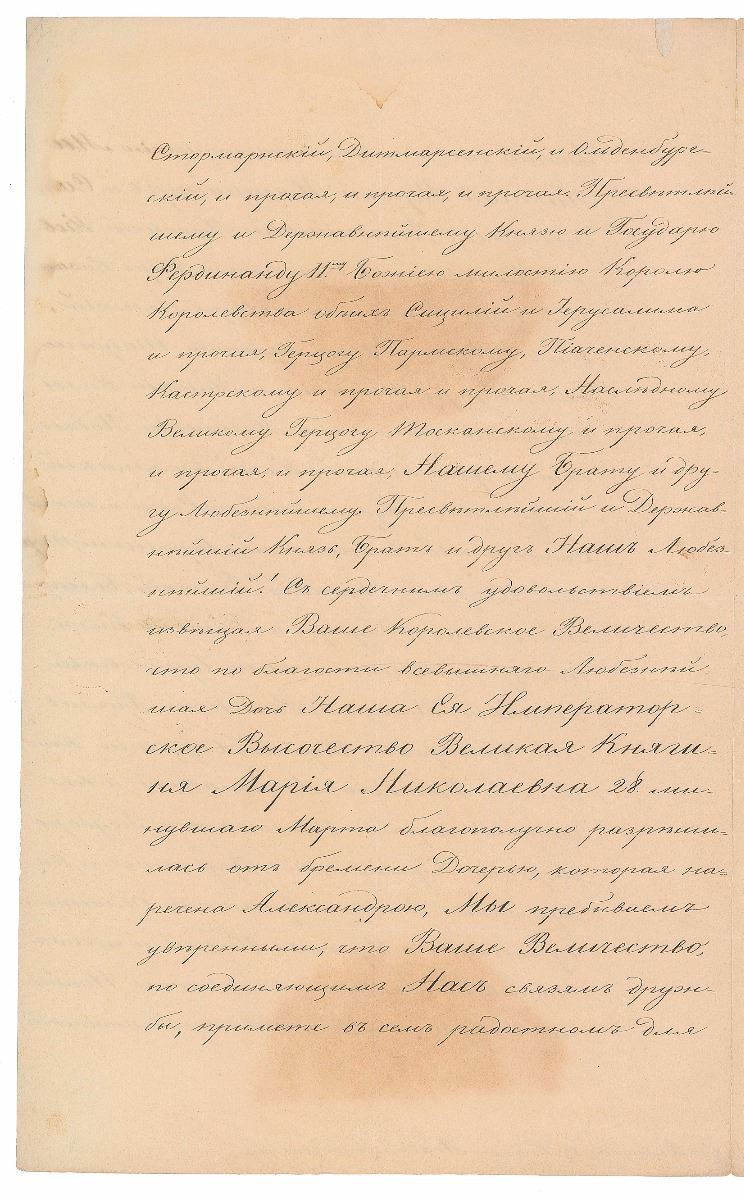 Стормарнскій, Дитмарсенскій, и Ольденбург-
скій, и прочая, и прочая, и прочая. Пресвѣтлѣй-
шему и Державнѣйшему Князю и Государю
Фердинанду II.му Божіею милостію Королю
Королевства обѣихъ Сицилій и Іерусалима
и прочая, Герцогу Пармскому, Піаченскому,
Кастрскому и прочая и прочая, Наслѣдному
Великому Герцогу Тосканскому и прочая,
и прочая, и прочая, Нашему Брату и дру-
гу Любезнѣйшему. Пресвѣтлѣйшій и Держав-
нѣйшій Князь, Братъ и другъ Нашъ Любез-
нѣйшій! Съ сердечнымъ удовольствіемъ
извѣщая Ваше Королевское Величество,
что по благости всевышняго Любезнѣй
шая Дочь Наша Ея Император-
ское Высочество Великая Княги-
ня Марія Николаевна 28 ми-
нувшаго Марта благополучно разрѣши-
лась отъ бремени Дочерью, которая на-
речена Александрою, Мы пребываемъ
увѣренными, что Ваше Величество,
по соединяющимъ Насъ связямъ друж-
бы, примете въ семъ радостномъ для